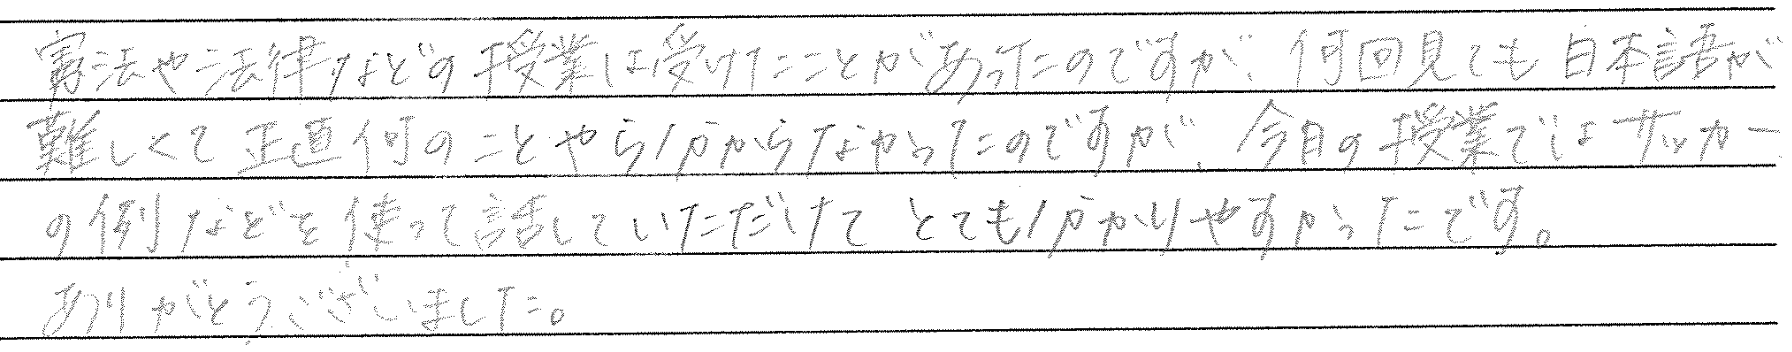 憲法や法律などの授業は受けたことがあったのですが、何回見ても日本語が
難しくて正直何のことやら分からなかったのですが、今日の授業ではサッカー
の例などを使って話していただけてとても分かりやすかったです。
ありがとうございました。